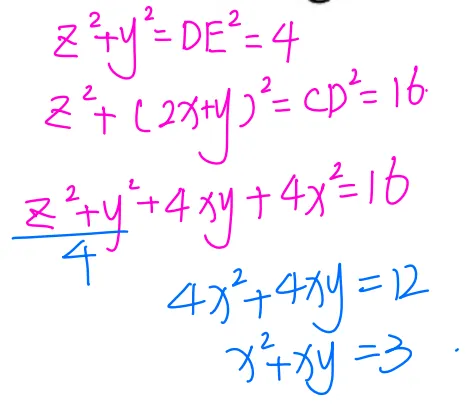 z²+y²=DE²=4
z²+(2x+y)²=CD²=16
z²+y²+4xy+4x²=16
4
4x²+4xy=12
x²+xy=3